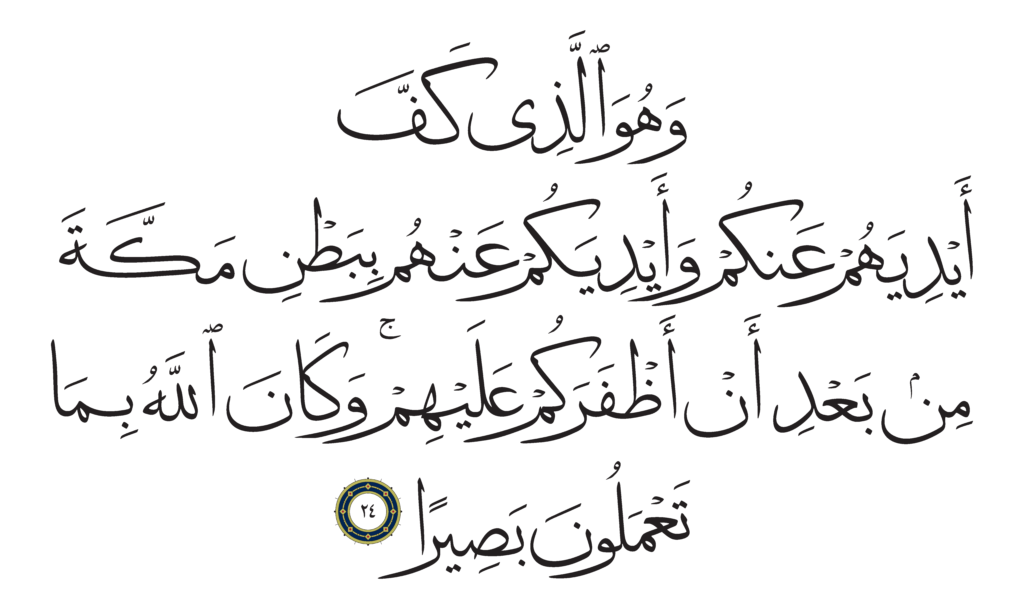 وَهُوَ ٱلَّذِى كَفَّ
أَيْدِيَهُمْ عَنكُمْ وَأَيْدِيَكُمْ عَنْهُم بِبَطْنِ مَكَّةَ
مِنۢ بَعْدِ أَنْ أَظْفَرَكُمْ عَلَيْهِمْ ۚ وَكَانَ ٱللَّهُ بِمَا
تَعْمَلُونَ بَصِيرًا ٢٤